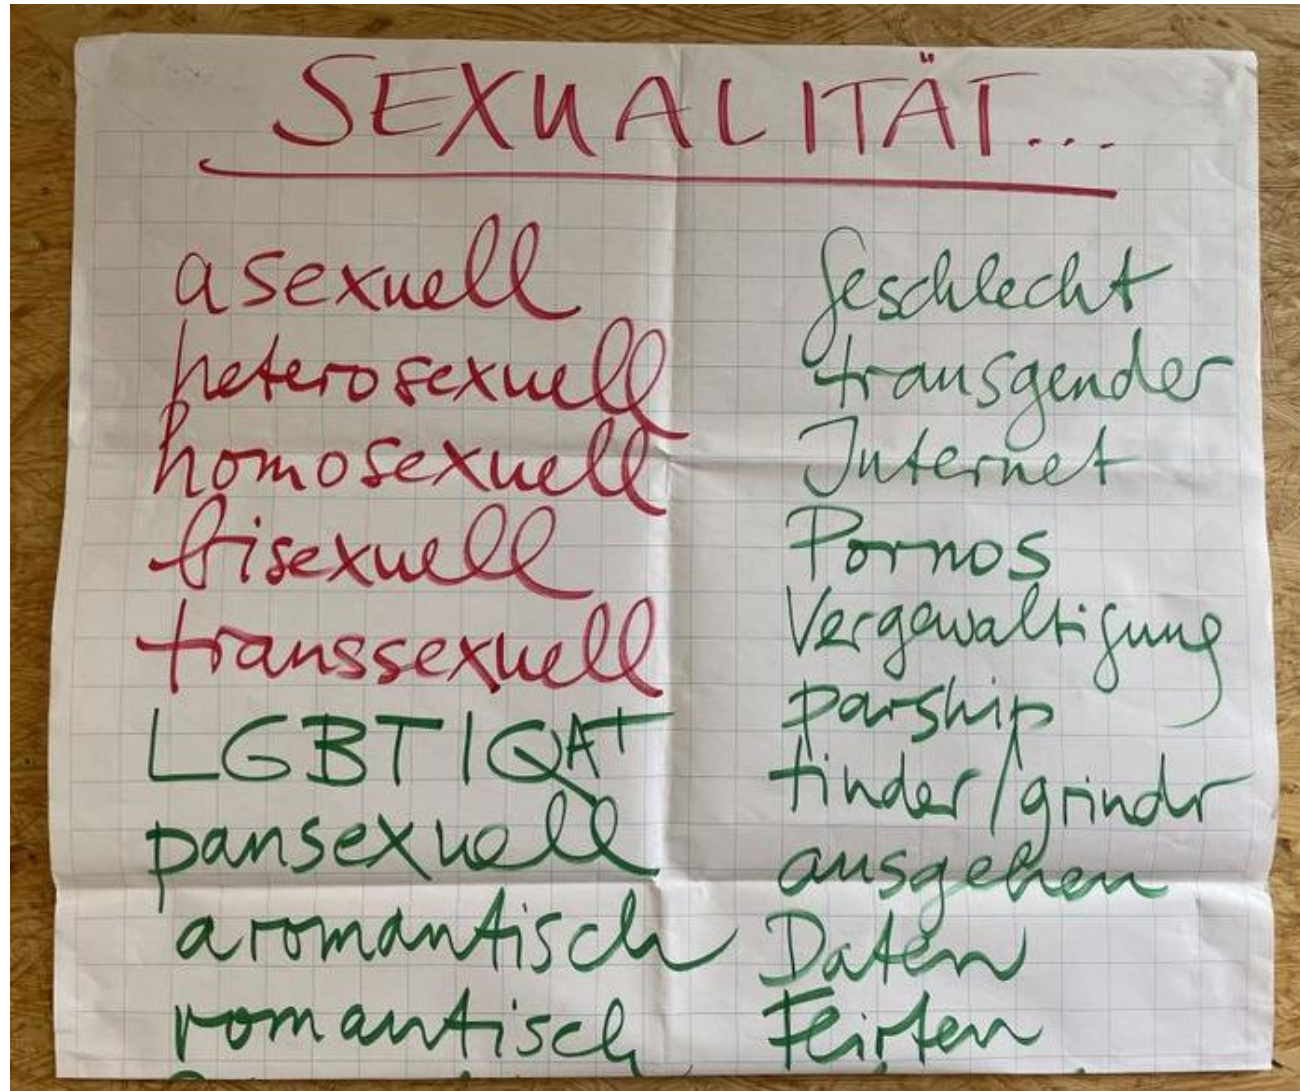 SEXUALITÄT...
asexuell
heterosexuell
homosexuell
bisexuell
transsexuell
LGBTIQA+
pansexuell
aromantisch
romantisch
Geschlecht
transgender
Internet
Pornos
Vergewaltigung
parship
tinder/grindr
ausgehen
Daten
Flirten